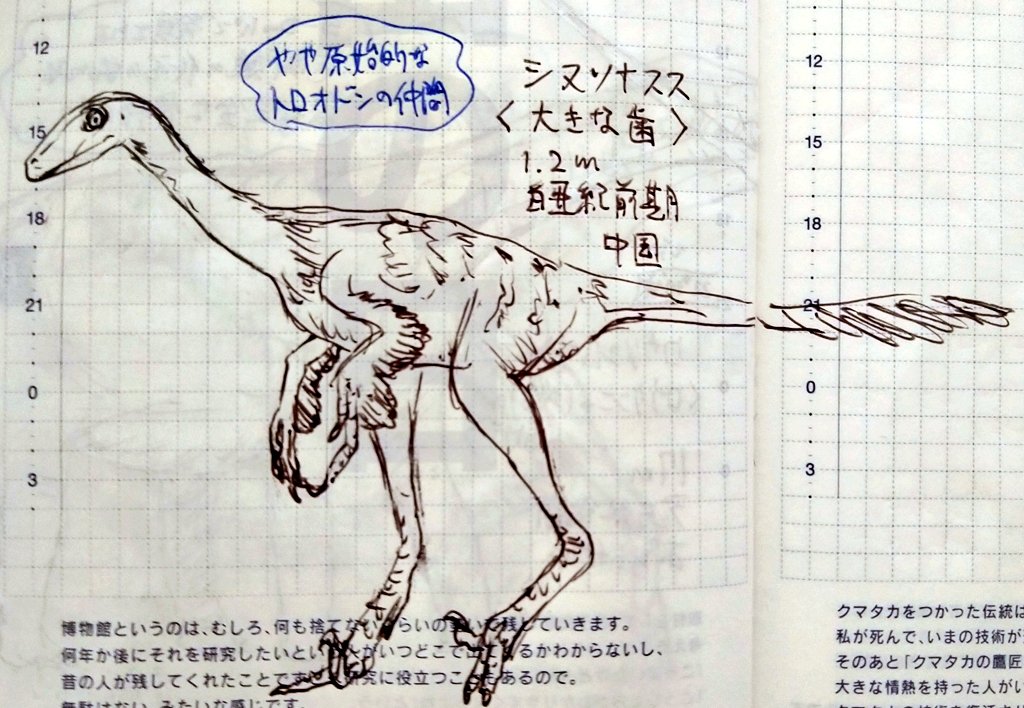 やや原始的な
トロオドンの仲間
シヌソナスス
〈大きな歯〉
1.2m
白亜紀前期
中国
12
15
18
21
0
3
12
15
18
21
0
3
博物館というのは、むしろ、何も捨てないくらいの勢いで残していきます。
何年か後にそれを研究したいという人がいつどこで出てくるかわからないし、
昔の人が残してくれたことですごく研究に役立つこともあるので。
無駄はない、みたいな感じです。
クマタカをつかった伝統は
私が死んで、いまの技術が
そのあと「クマタカの鷹匠
大きな情熱を持った人がい